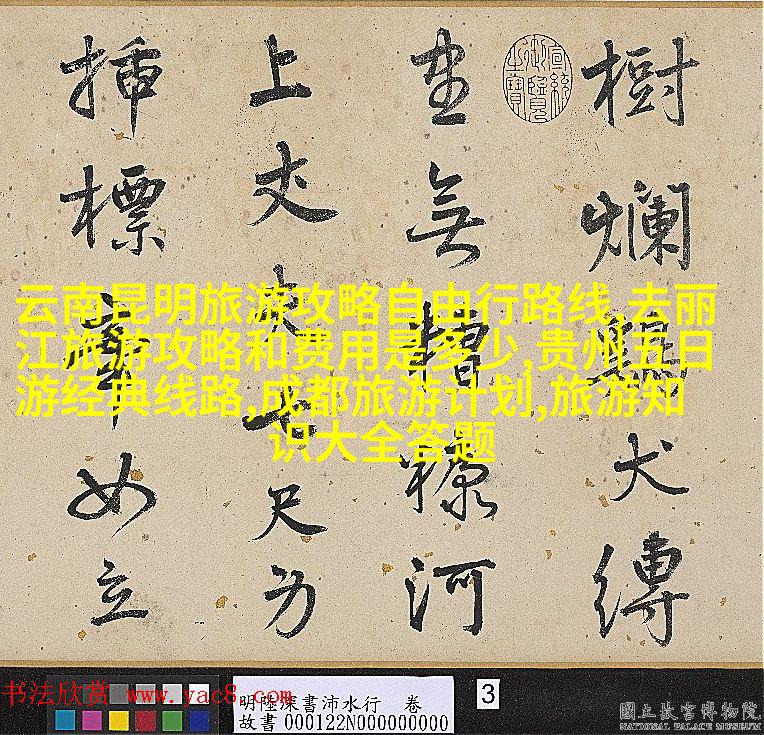 樹爛犬縛
坐無糟糠河
上丈夫七尺
插標如立
宣統御覽之寶
云南昆明旅游攻略自由行路线,去丽
江旅游攻略和费用是多少,贵州五日
游经典线路,成都旅游计划,旅游知
识大全答题
书法欣赏 www.yac8.com
明陸深書沛水行 卷
故書000122N000000000
3
國立故宮博物院
NATIONAL PALACE MUSEUM